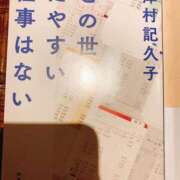 津村記久子
の世
たやすい
仕事はない